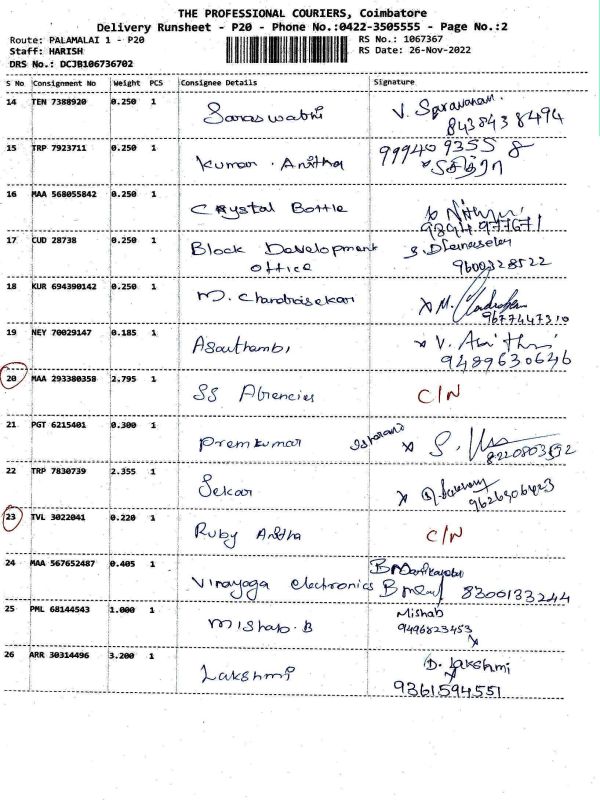 THE PROFESSIONAL COURIERS, Coimbatore
Delivery Runsheet - P20 - Phone No.:0422-3505555 - Page No.:2
Route: PALAMALAI 1 - P20 RS No.: 1067367
Staff: HARISH RS Date: 26-Nov-2022
DRS No.: DCJB106736702
S No Consignment No Weight PCS Consignee Details Signature
14 TEN 7388920 0.250 1 Saraswathi V. Saravanan.
8438438494
15 TRP 7923711 0.250 1 Kumar. Anitha 99940 9355 8
16 MAA 568055842 0.250 1 Crystal Bottle
9894977671
17 CUD 28738 0.250 1 Block Development S. Dhanaselan
office 9600328522
18 KUR 694390142 0.250 1 M. Chandrasekar M.
9677447310
19 NEY 70029147 0.185 1 V.
9489630646
20 MAA 293380358 2.795 1 SS Agencies C/N
21 PGT 6215401 0.300 1 Premkumar S.
22 TRP 7830739 2.355 1 Sekar
9626506423
23 TVL 3022041 0.220 1 Ruby Anitha C/N
24 MAA 567652487 0.405 1 Vinayoga electronics 8300133244
25 PML 68144543 1.000 1 Mishab. B Mishab
9496823453
26 ARR 30314496 3.200 1 Lakshmi D. Lakshmi
9361594551